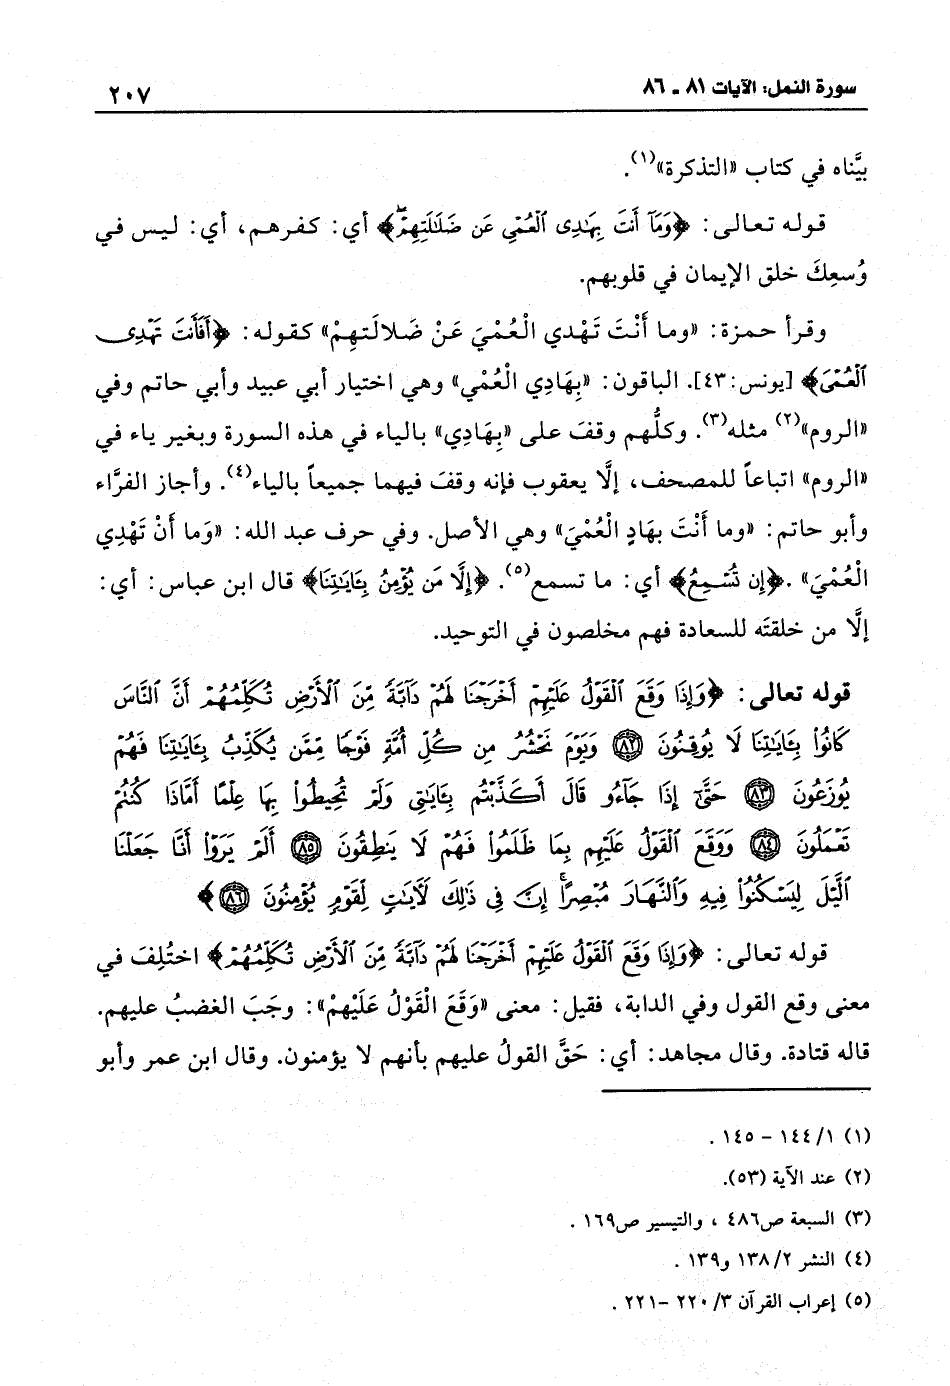 سورة النمل: الآيات ٨١ - ٨٦
٢٠٧
بيَّناه في كتاب «التذكرة»(١).
قوله تعالى: ﴿وَمَآ أَنتَ بِهَٰدِى ٱلْعُمْىِ عَن ضَلَٰلَتِهِمْ﴾ أي: كفرهم، أي: ليس في
وُسعِكَ خلق الإيمان في قلوبهم.
وقرأ حمزة: «وما أَنْتَ تَهْدي الْعُمْيَ عَنْ ضَلالَتهِمْ» كقوله: ﴿أَفَأَنتَ تَهْدِى
ٱلْعُمْىَ﴾ [يونس: ٤٣]. الباقون: «بِهَادِي الْعُمْي» وهي اختيار أبي عبيد وأبي حاتم وفي
«الروم»(٢) مثله(٣). وكلُّهم وقفَ على «بِهَادِي» بالياء في هذه السورة وبغير ياء في
«الروم» اتباعاً للمصحف، إلَّا يعقوب فإنه وقفَ فيهما جميعاً بالياء(٤). وأجاز الفرَّاء
وأبو حاتم: «وما أَنْتَ بهَادٍ الْعُمْيَ» وهي الأصل. وفي حرف عبد الله: «وَما أَنْ تَهْدِي
الْعُمْيَ». ﴿إِن تُسْمِعُ﴾ أي: ما تسمع(٥). ﴿إِلَّا مَن يُؤْمِنُ بِـَٔايَٰتِنَا﴾ قال ابن عباس: أي:
إلَّا من خلقتَه للسعادة فهم مخلصون في التوحيد.
قوله تعالى: ﴿وَإِذَا وَقَعَ ٱلْقَوْلُ عَلَيْهِمْ أَخْرَجْنَا لَهُمْ دَآبَّةً مِّنَ ٱلْأَرْضِ تُكَلِّمُهُمْ أَنَّ ٱلنَّاسَ
كَانُوا۟ بِـَٔايَٰتِنَا لَا يُوقِنُونَ ﴿٨٢﴾ وَيَوْمَ نَحْشُرُ مِن كُلِّ أُمَّةٍ فَوْجًا مِّمَّن يُكَذِّبُ بِـَٔايَٰتِنَا فَهُمْ
يُوزَعُونَ ﴿٨٣﴾ حَتَّىٰٓ إِذَا جَآءُو قَالَ أَكَذَّبْتُم بِـَٔايَٰتِى وَلَمْ تُحِيطُوا۟ بِهَا عِلْمًا أَمَّاذَا كُنتُمْ
تَعْمَلُونَ ﴿٨٤﴾ وَوَقَعَ ٱلْقَوْلُ عَلَيْهِم بِمَا ظَلَمُوا۟ فَهُمْ لَا يَنطِقُونَ ﴿٨٥﴾ أَلَمْ يَرَوْا۟ أَنَّا جَعَلْنَا
ٱلَّيْلَ لِيَسْكُنُوا۟ فِيهِ وَٱلنَّهَارَ مُبْصِرًا إِنَّ فِى ذَٰلِكَ لَـَٔايَٰتٍ لِّقَوْمٍ يُؤْمِنُونَ ﴿٨٦﴾﴾
قوله تعالى: ﴿وَإِذَا وَقَعَ ٱلْقَوْلُ عَلَيْهِمْ أَخْرَجْنَا لَهُمْ دَآبَّةً مِّنَ ٱلْأَرْضِ تُكَلِّمُهُمْ﴾ اختُلِفَ في
معنى وقع القول وفي الدابة، فقيل: معنى «وَقَعَ الْقَوْلُ عَلَيْهِمْ»: وجَبَ الغضبُ عليهم.
قاله قتادة. وقال مجاهد: أي: حَقَّ القولُ عليهم بأنهم لا يؤمنون. وقال ابن عمر وأبو
(١) ١/ ١٤٤ - ١٤٥ .
(٢) عند الآية (٥٣).
(٣) السبعة ص٤٨٦ ، والتيسير ص١٦٩ .
(٤) النشر ٢/ ١٣٨ و١٣٩ .
(٥) إعراب القرآن ٣/ ٢٢٠ -٢٢١ .